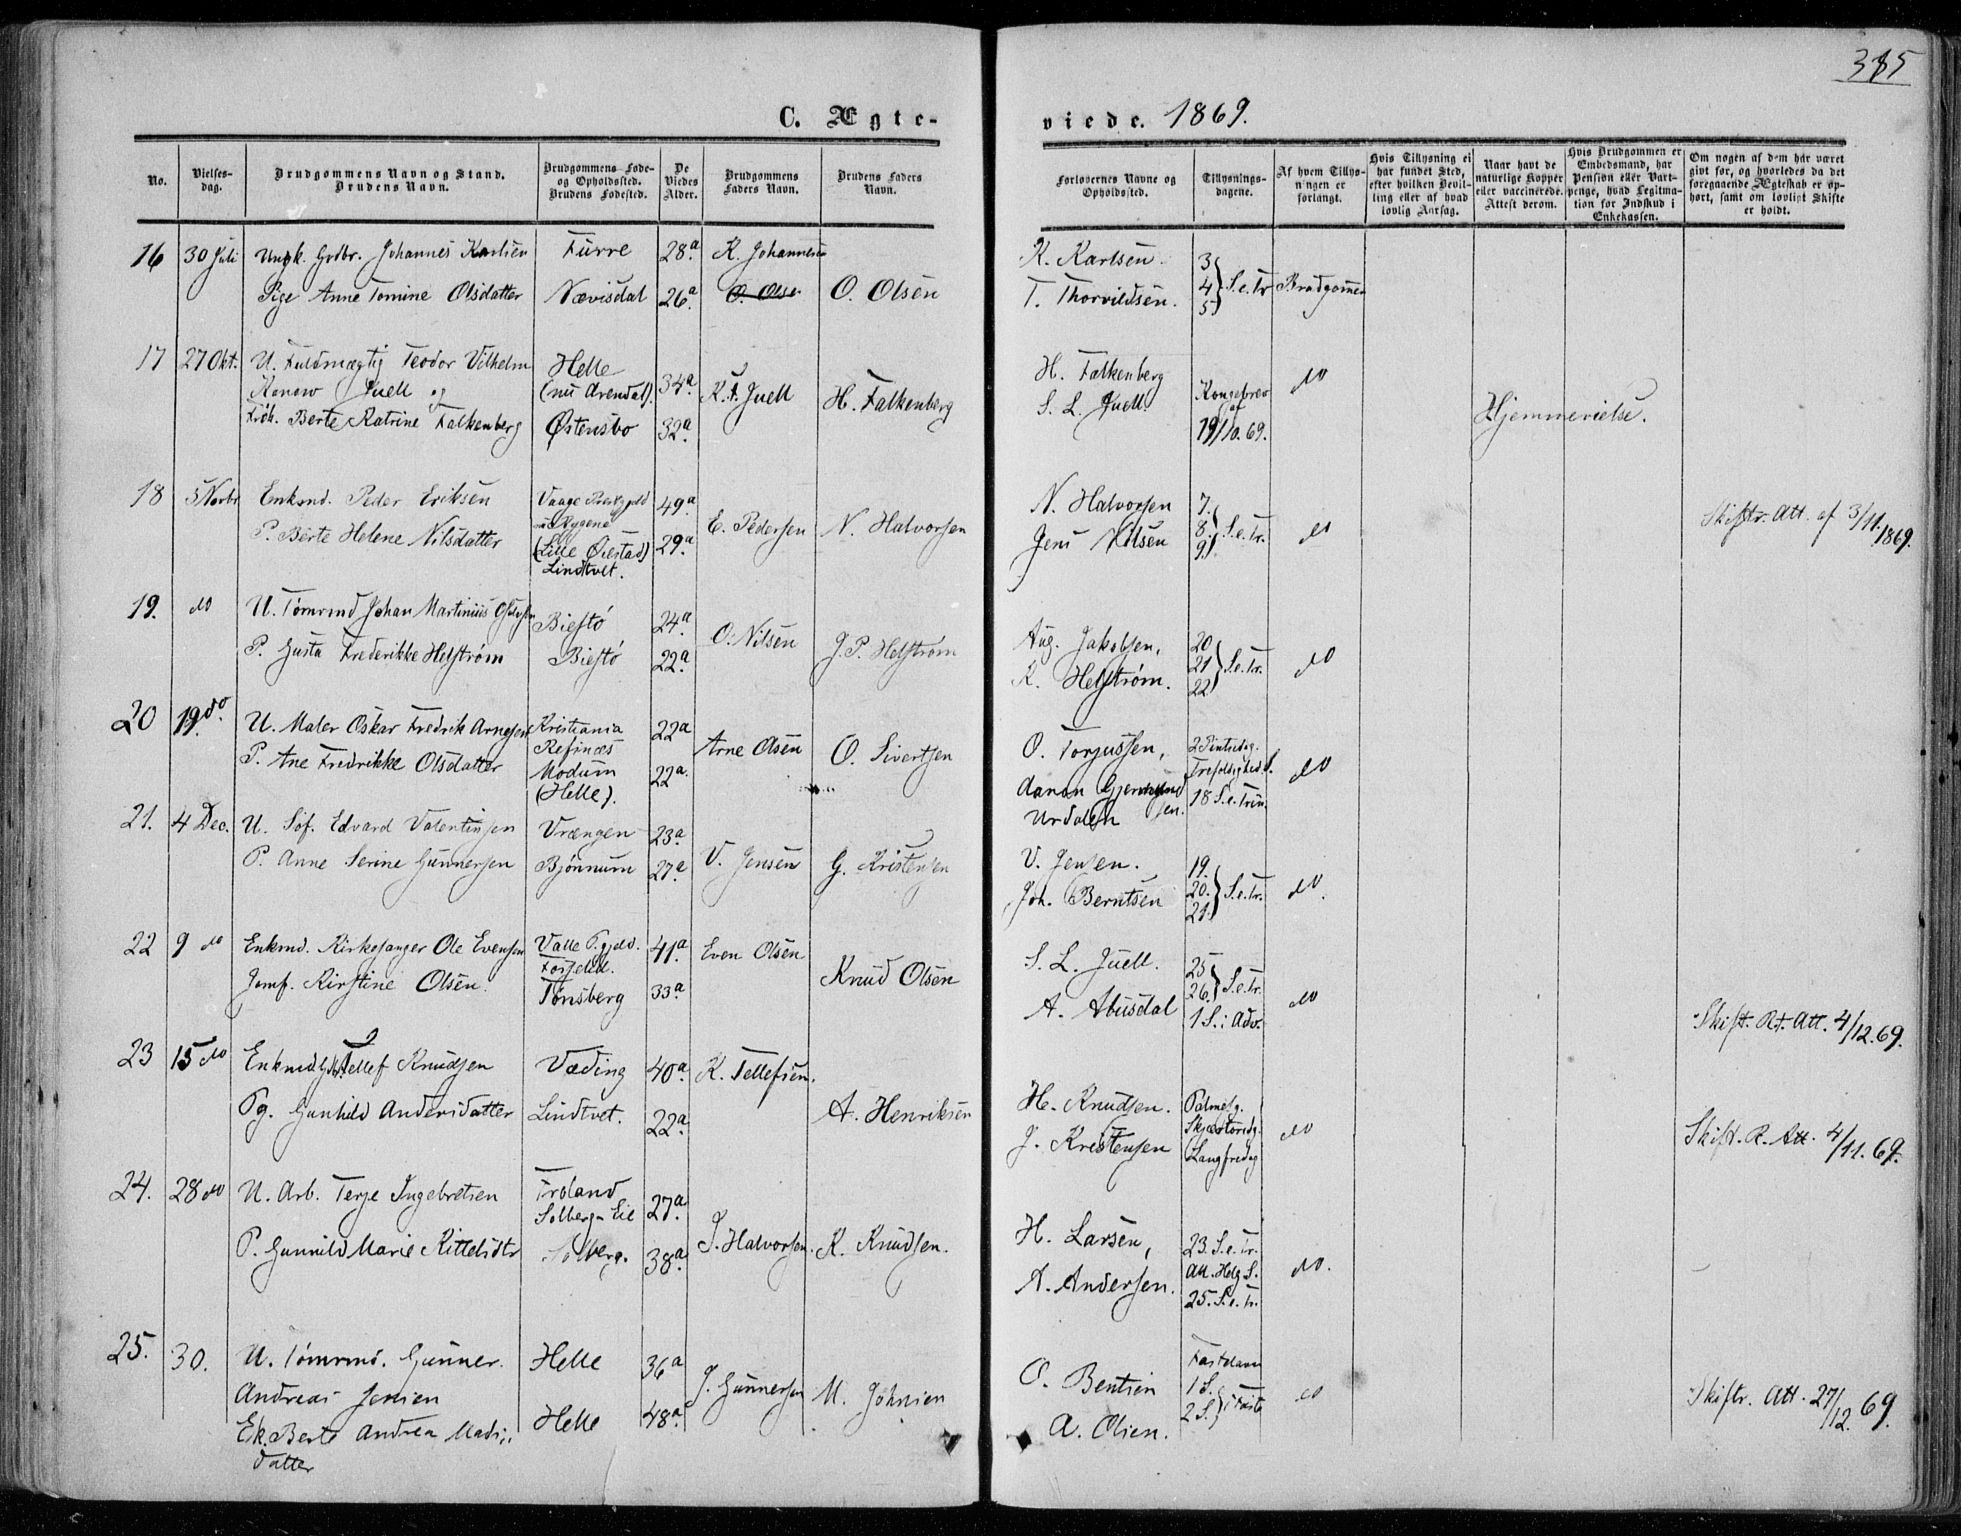 385
C. Ægte-
viede. 1869.
No.
Vielses-
dag.
Brudgommens Navn og Stand.
Brudens Navn.
Brudgommens Føde-
og Opholdssted.
Brudens Fødested.
De
Viedes
Alder.
Brudgommens
Faders Navn.
Brudens Faders
Navn.
Forlovernes Navne og
Opholdssted.
Tillysnings-
dagene.
Af hvem Tillys-
ningen er
forlangt.
Hvis Tillysning ei
har fundet Sted,
efter hvilken Bevil-
ling eller af hvad
lovlig Aarsag.
Naar havt de
naturlige Kopper
eller vaccinerede.
Attest derom.
Hvis Brudgommen er
Embedsmand, har
Pension eller Vart-
penge, hvad Legitma-
tion for Indskud i
Enkekassen.
Om nogen af dem har været
givt før, og hvorledes da det
foregaaende Ægteskab er op-
hørt, samt om lovligt Skifte
er holdt.
16 30 Juli Ungk. Grdbr. Johannes Karlsen Furre 28a K. Johannesen K. Karlsen. 3
Pige Anne Tomine Olsdatter Nævisdal 26a. O. Olse O. Olsen T. Thorvildsen. 4 S. e. Tr Brudgomen
5
17 27 Okt. U. Fuldmægtig Teodor Vilhelm Helle H. Falkenberg do
Konow Juell og (nu Arendal). 34a K. F. Juell H. Falkenberg S. L. Juell. Kongebrev
af
Frøk. Berte Katrine Falkenberg Østensbo 32a. 19/10.69. Hjemmevielse.
18 5 Novbr Enkmd. Peder Eriksen Vaage Præstgjeld 49a N. Halvorsen 7.
Rygene E. Pedersen N. Halvorsen 8 S. e. Tr. do Skiftr. Att. af 3/11.1869.
P. Berte Helene Nilsdatter (Lille Øiestad) 29a Jens Nilsen 9.
Lindtvet.
19. do U. Tømrmd Johan Martinius Olsen Biestø 24a. O. Nilsen J. P. Helstrøm Aug. Jakobsen, 20
P. Gusta Frederikke Helstrøm Biestø 22a. K. Helstrøm. 21 S. e. Tr. do
22
20 19 do. U. Maler Oskar Fredrik Arnesen Kristiania 22a O. Torjussen, 2 Pintsedg.
Refsnæs Arne Olsen O. Sivertsen Trefoldighed. S. do
P. Ane Fredrikke Olsdatter Modum 22a. Aanon Gjermund 18 S. e. Trin.
(Helle). sen.
Urdalen
21. 4 Dec. U. Søf. Edvard Valentinsen Vrængen 23a V. Jensen G. Kristensen V. Jensen. 19.
P. Anne Serine Gunnersen Bjønnum 27a Joh. Berntsen 20. S. e. Tr. do.
21.
22 9 do Enkmd. Kirkesanger Ole Evensen Valle P.gjeld. 41a. Even Olsen S. L. Juell. 25
26. S. e. Tr. do
Jomf. Kirstine Olsen. Tønsberg 33a Knud Olsen A. Abusdal 1 S. i Adv. Skift. Rt. Att. 4/12.69.
23 15 do Enkmd Tellef Knudsen Væding 40a. K. Tellefsen. H. Knudsen. Palmesg.
Pg. Gunhild Andersdatter Lindtvet. 22a. A. Henriksen J. Kristensen Skjærtorsdg. do Skift. R. Att. 4/11.69.
Langfredag
24. 28 do U. Arb. Terje Ingebretsen Froland 27a. H. Larsen, 23. S. e. Tr.
Solberg- Eie J. Halvorsen. K. Knudsen. All. Helg S. do.
P. Gunnild Marie Kittelsdtr Solberg. 38a. A. Andersen. 25. S. e. Tr.
25. 30. U. Tømrmd. Gunner Helle 36a J. Gunnersen M. Johnsen O. Bentsen Fastelavn
Andreas Jensen 1 S.
2 S. i Faste do Skiftr. Att. 27/12.69.
Ek. Berte Andrea Mads- Helle 48a. A. Olsen.
datter